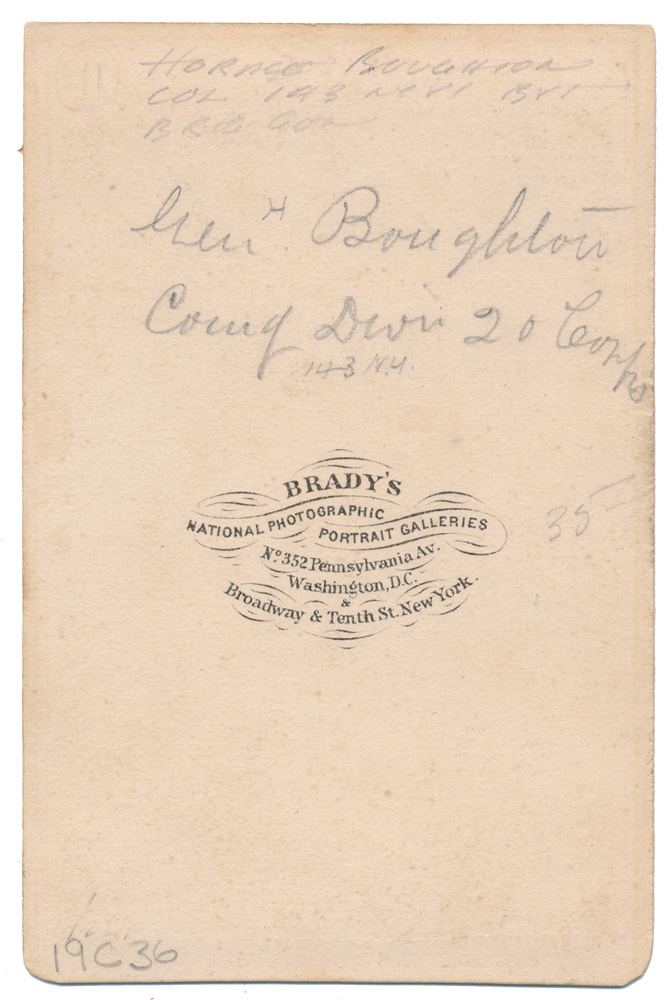 11
HORACE BOUGHTON
COL 143 NEW YORK BVT
BRIG GEN
Gen H. Boughton
Comg Divn 20 Corps
143 N.Y.
BRADY'S
NATIONAL PHOTOGRAPHIC
PORTRAIT GALLERIES
No. 352 Pennsylvania Av.
Washington, D.C.
&
Broadway & Tenth St. New York.
35
19C36